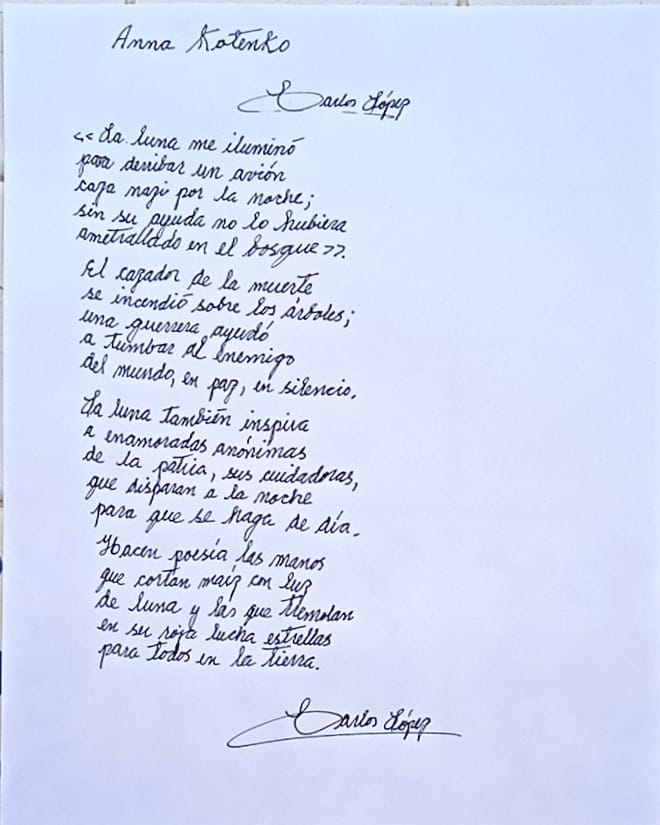 Anna Kotenko
Carlos López
<<La luna me iluminó
para derribar un avión
caza nazi por la noche;
sin su ayuda no lo hubiera
ametrallado en el bosque>>.
El cazador de la muerte
se incendió sobre los árboles;
una guerrera ayudó
a tumbar al enemigo
del mundo, en paz, en silencio.
La luna también inspira
a enamoradas anónimas
de la patria, sus cuidadoras,
que disparan a la noche
para que se haga de día.
Hacen poesía las manos
que cortan maíz con luz
de luna y las que tremolan
en su roja lucha estrellas
para todos en la tierra.
Carlos López